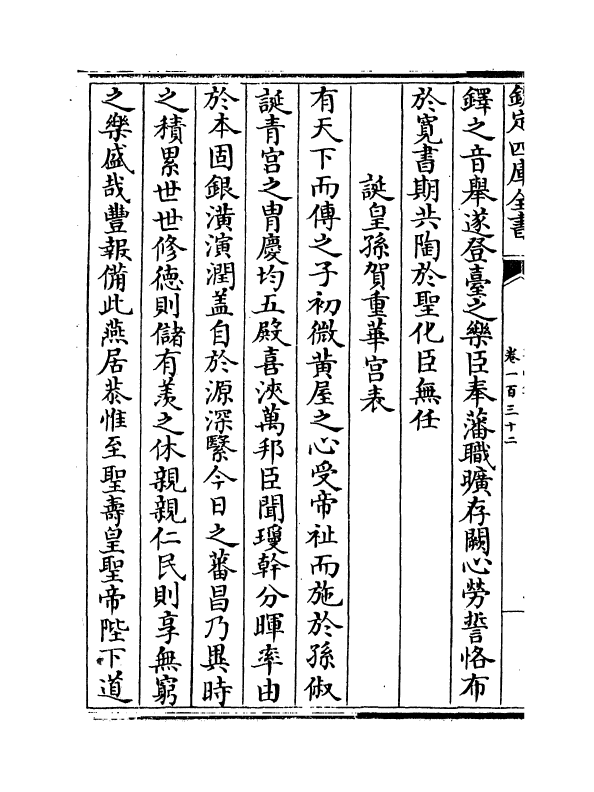 欽定四庫全書
卷一百三十二
鐸之音舉遂登臺之樂臣奉藩職曠存闕心勞誓恪布
於寛書期共陶於聖化臣無任
誕皇孫賀重華宫表
有天下而傳之子初微黄屋之心受帝祉而施於孫俶
誕青宫之胄慶均五殿喜浹萬邦臣聞瓊幹分暉率由
於本固銀潢演潤盖自於源深緊今日之蕃昌乃異時
之積累世世修徳則儲有羡之休親親仁民則享無窮
之樂盛哉豐報備此燕居恭惟至聖壽皇聖帝陛下道